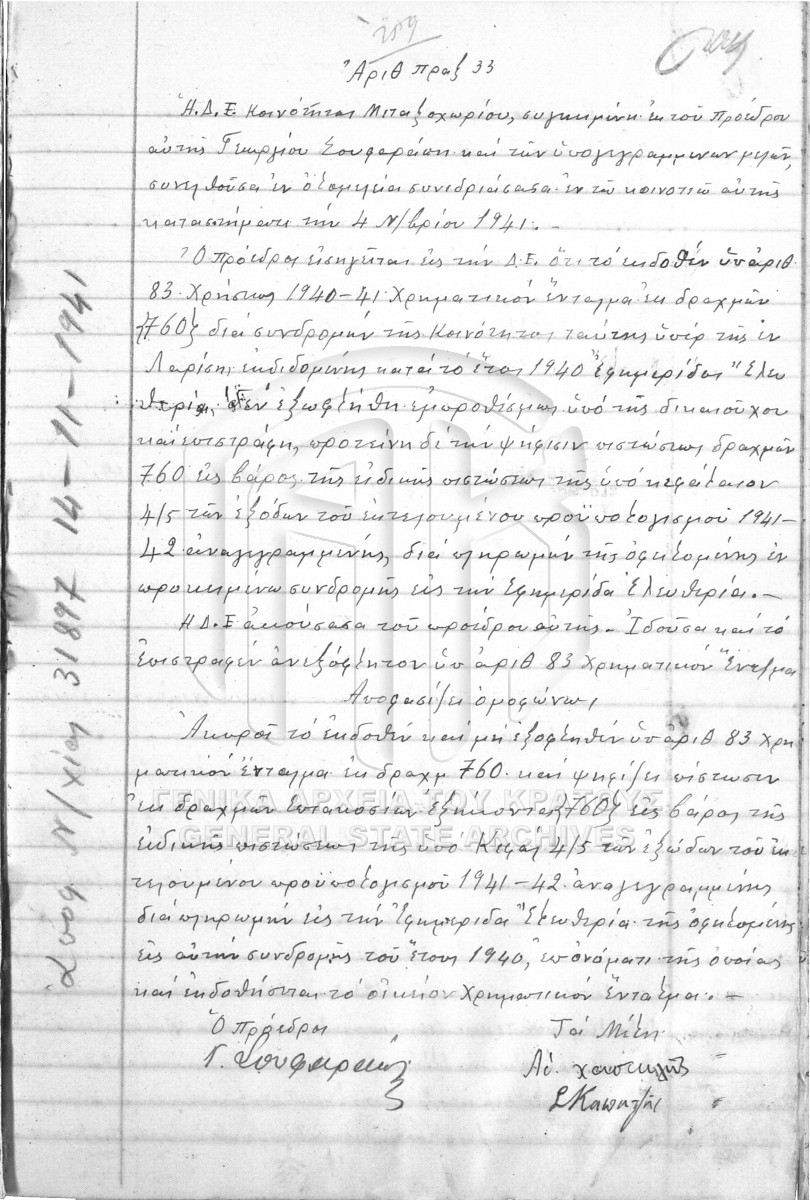 259
Ἀριθ πραξ 33
Ἡ.Δ.Ε. Κοινότητος Μεταξοχωρίου, συγκειμένη ἐκ τοῦ Προέδρου
αὐτῆς Γεωργίου Σουφαράπη καί τῶν ὑπογεγραμμένων μελῶν,
συνελθοῦσα ἐν ὁλομελεία συνεδριάσασα ἐν τῶ κοινοτικῶ αὐτῆς
καταστήματι τήν 4 Ν/βρίου 1941.-
Ὁ Πρόεδρος εἰσηγεῖται εἰς τήν Δ.Ε. ὅτι τό ἐκδοθέν ὑπ' ἀριθ
83 Χρήσεως 1940-41 Χρηματικόν ἔνταλμα ἐκ δραχμῶν
760 διά συνδρομήν τῆς Κοινότητος ταύτης ὑπέρ τῆς ἐν
Λαρίση, ἐκδιδομένης κατά τό ἔτος 1940 Ἐφημερίδος "Ελευ
θερία, δέν ἐξωφλήθη ἐμπροθέσμως ὑπό τῆς δικαιούχου
καί επεστράφη, προτείνη δέ τήν ψήφισιν πιστώσεως δραχμῶν
760 εἰς βάρος τῆς εἰδικῆς πιστώσεως τῆς ὑπό κεφάλαιον
4/5 τῶν ἐξόδων τοῦ ἐκτελουμένου προϋπολογισμοῦ 1941-
42 ἀναγεγραμμένης, διά πληρωμήν τῆς ὀφειλομένης ἐν
προκειμένω συνδρομῆς εἰς τήν Ἐφημερίδα Ἐλευθερία.-
Η Δ.Ε ἀκούσασα τοῦ προέδρου αὐτῆς - Ἰδοῦσα καί τό
ἐπιστραφέν ἀνεξόφλητον ὑπ ἀριθ 83 Χρηματικόν Ἔνταλμα
Αποφασίζει ὁμοφώνως
Ἀκυροῖ τό ἐκδοθέν καί μή ἐξοφληθέν ὑπ ἀριθ 83 χρη
ματικόν ἔνταλμα ἐκ δραχμ 760 καί ψηφίζει πίστωσιν
ἐκ δραχμῶν ἑπτακοσίων ἑξήκοντα 760 εἰς βάρος τῆς
εἰδικῆς πιστώσεως τῆς ὑπό Κεφάλ 4/5 τῶν ἐξώδων τοῦ ἐκ
τελουμένου προϋπολογισμοῦ 1941-42 ἀναγεγραμμένης
διά πληρωμήν εἰς τήν Ἐφημερίδα "Ελευθερία τῆς ὀφειλομένης
εἰς αὐτήν συνδρομῆς τοῦ ἔτους 1940, ἐπ' ὀνόματι τῆς ὁποίας
καί ἐκδοθήσεται τό οἰκεῖον Χρηματικόν ἔνταλμα.-
Ὁ Πρόεδρος
Τά Μέλη
ΓΕΝΙΚΑ ΑΡΧΕΙΑ ΤΟΥ ΚΡΑΤΟΥΣ
GENERAL STATE ARCHIVES
Ν/χίας 31897 14-11-1941